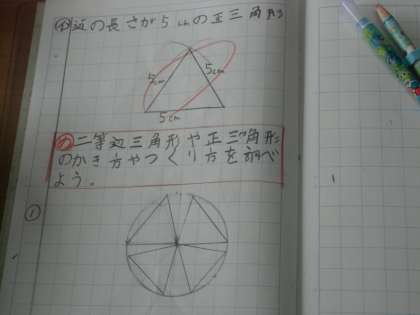 辺の長さが5cmの正三角形
5cm
5cm
5cm
二等辺三角形や正三角形
のかき方やつくり方を調べ
よう。
①